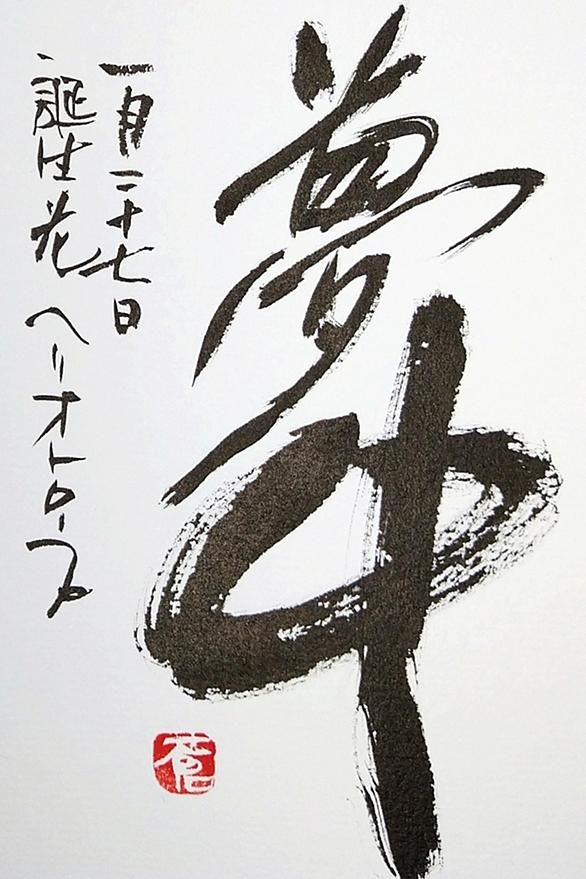 夢中
一月二十七日
誕生花 ヘリオトロープ